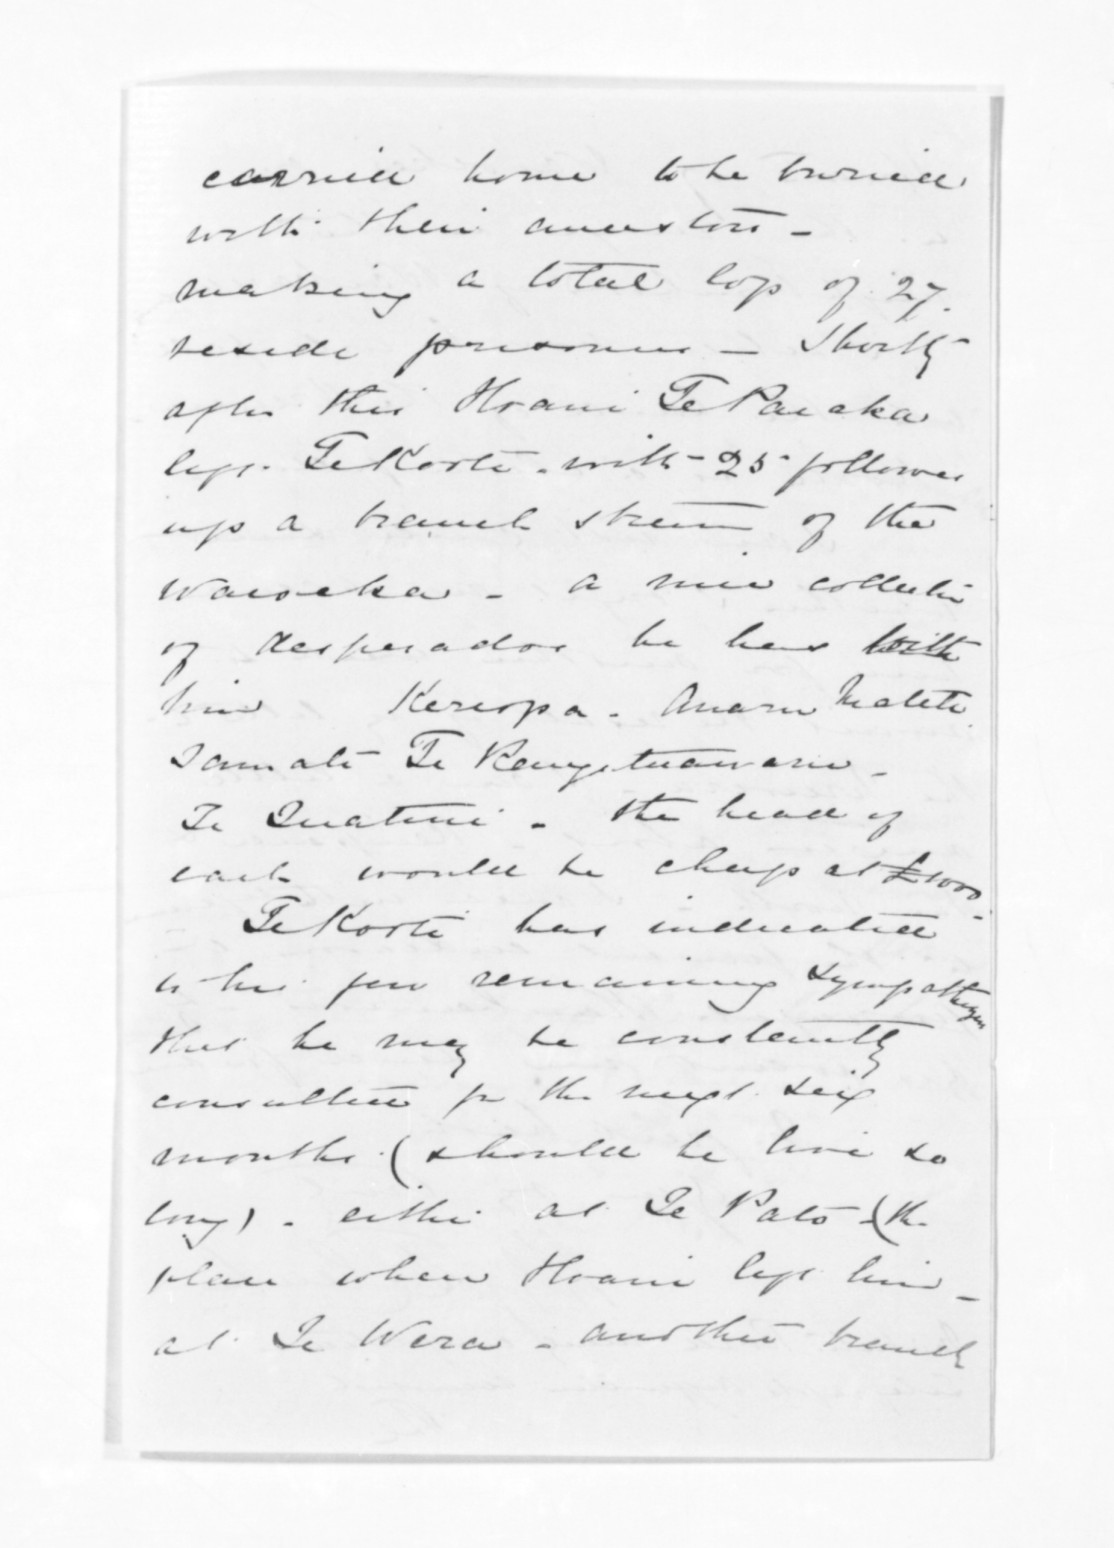 carried home to be buried
with their ancestors -
making a total loss of 27.
beside prisoners - Shortly
after this Hoani Te Paeaka
left Te Kooti - with 25 follower
up a branch stream of the
Waioeka - a nice collection
of desperados he has with
him Kereopa - Anaru Matete
Te Rangi
Te - the head of
each would be cheap at £1000 -
Te Kooti has indicated
to his few remaining sympathizers
that he may be constantly
consulted for the next six
months (should he live so
long) - either at Te Pato - (the
place where Hoani left him -
at Te Wera - another branch